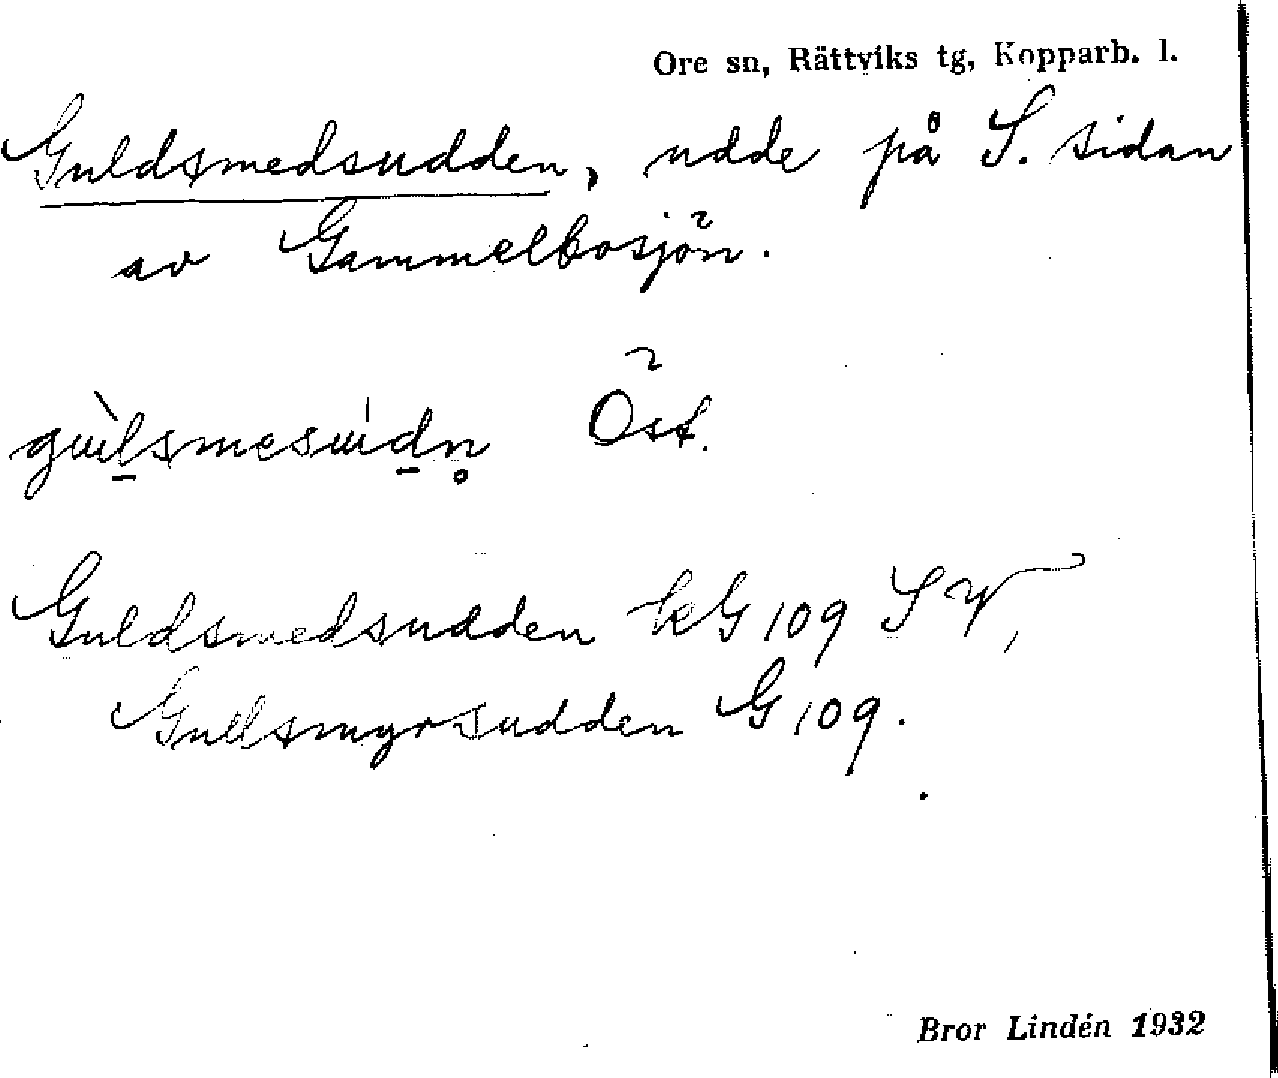 Ore sn, Rättviks tg, Kopparb. l.
Guldsmedsudden, udde på S. sidan
av Gammelbosjön.
Öst.
Guldsmedsudden kG 109 SV,
Gullsmyrsudden G 109.
Bror Lindén 1932